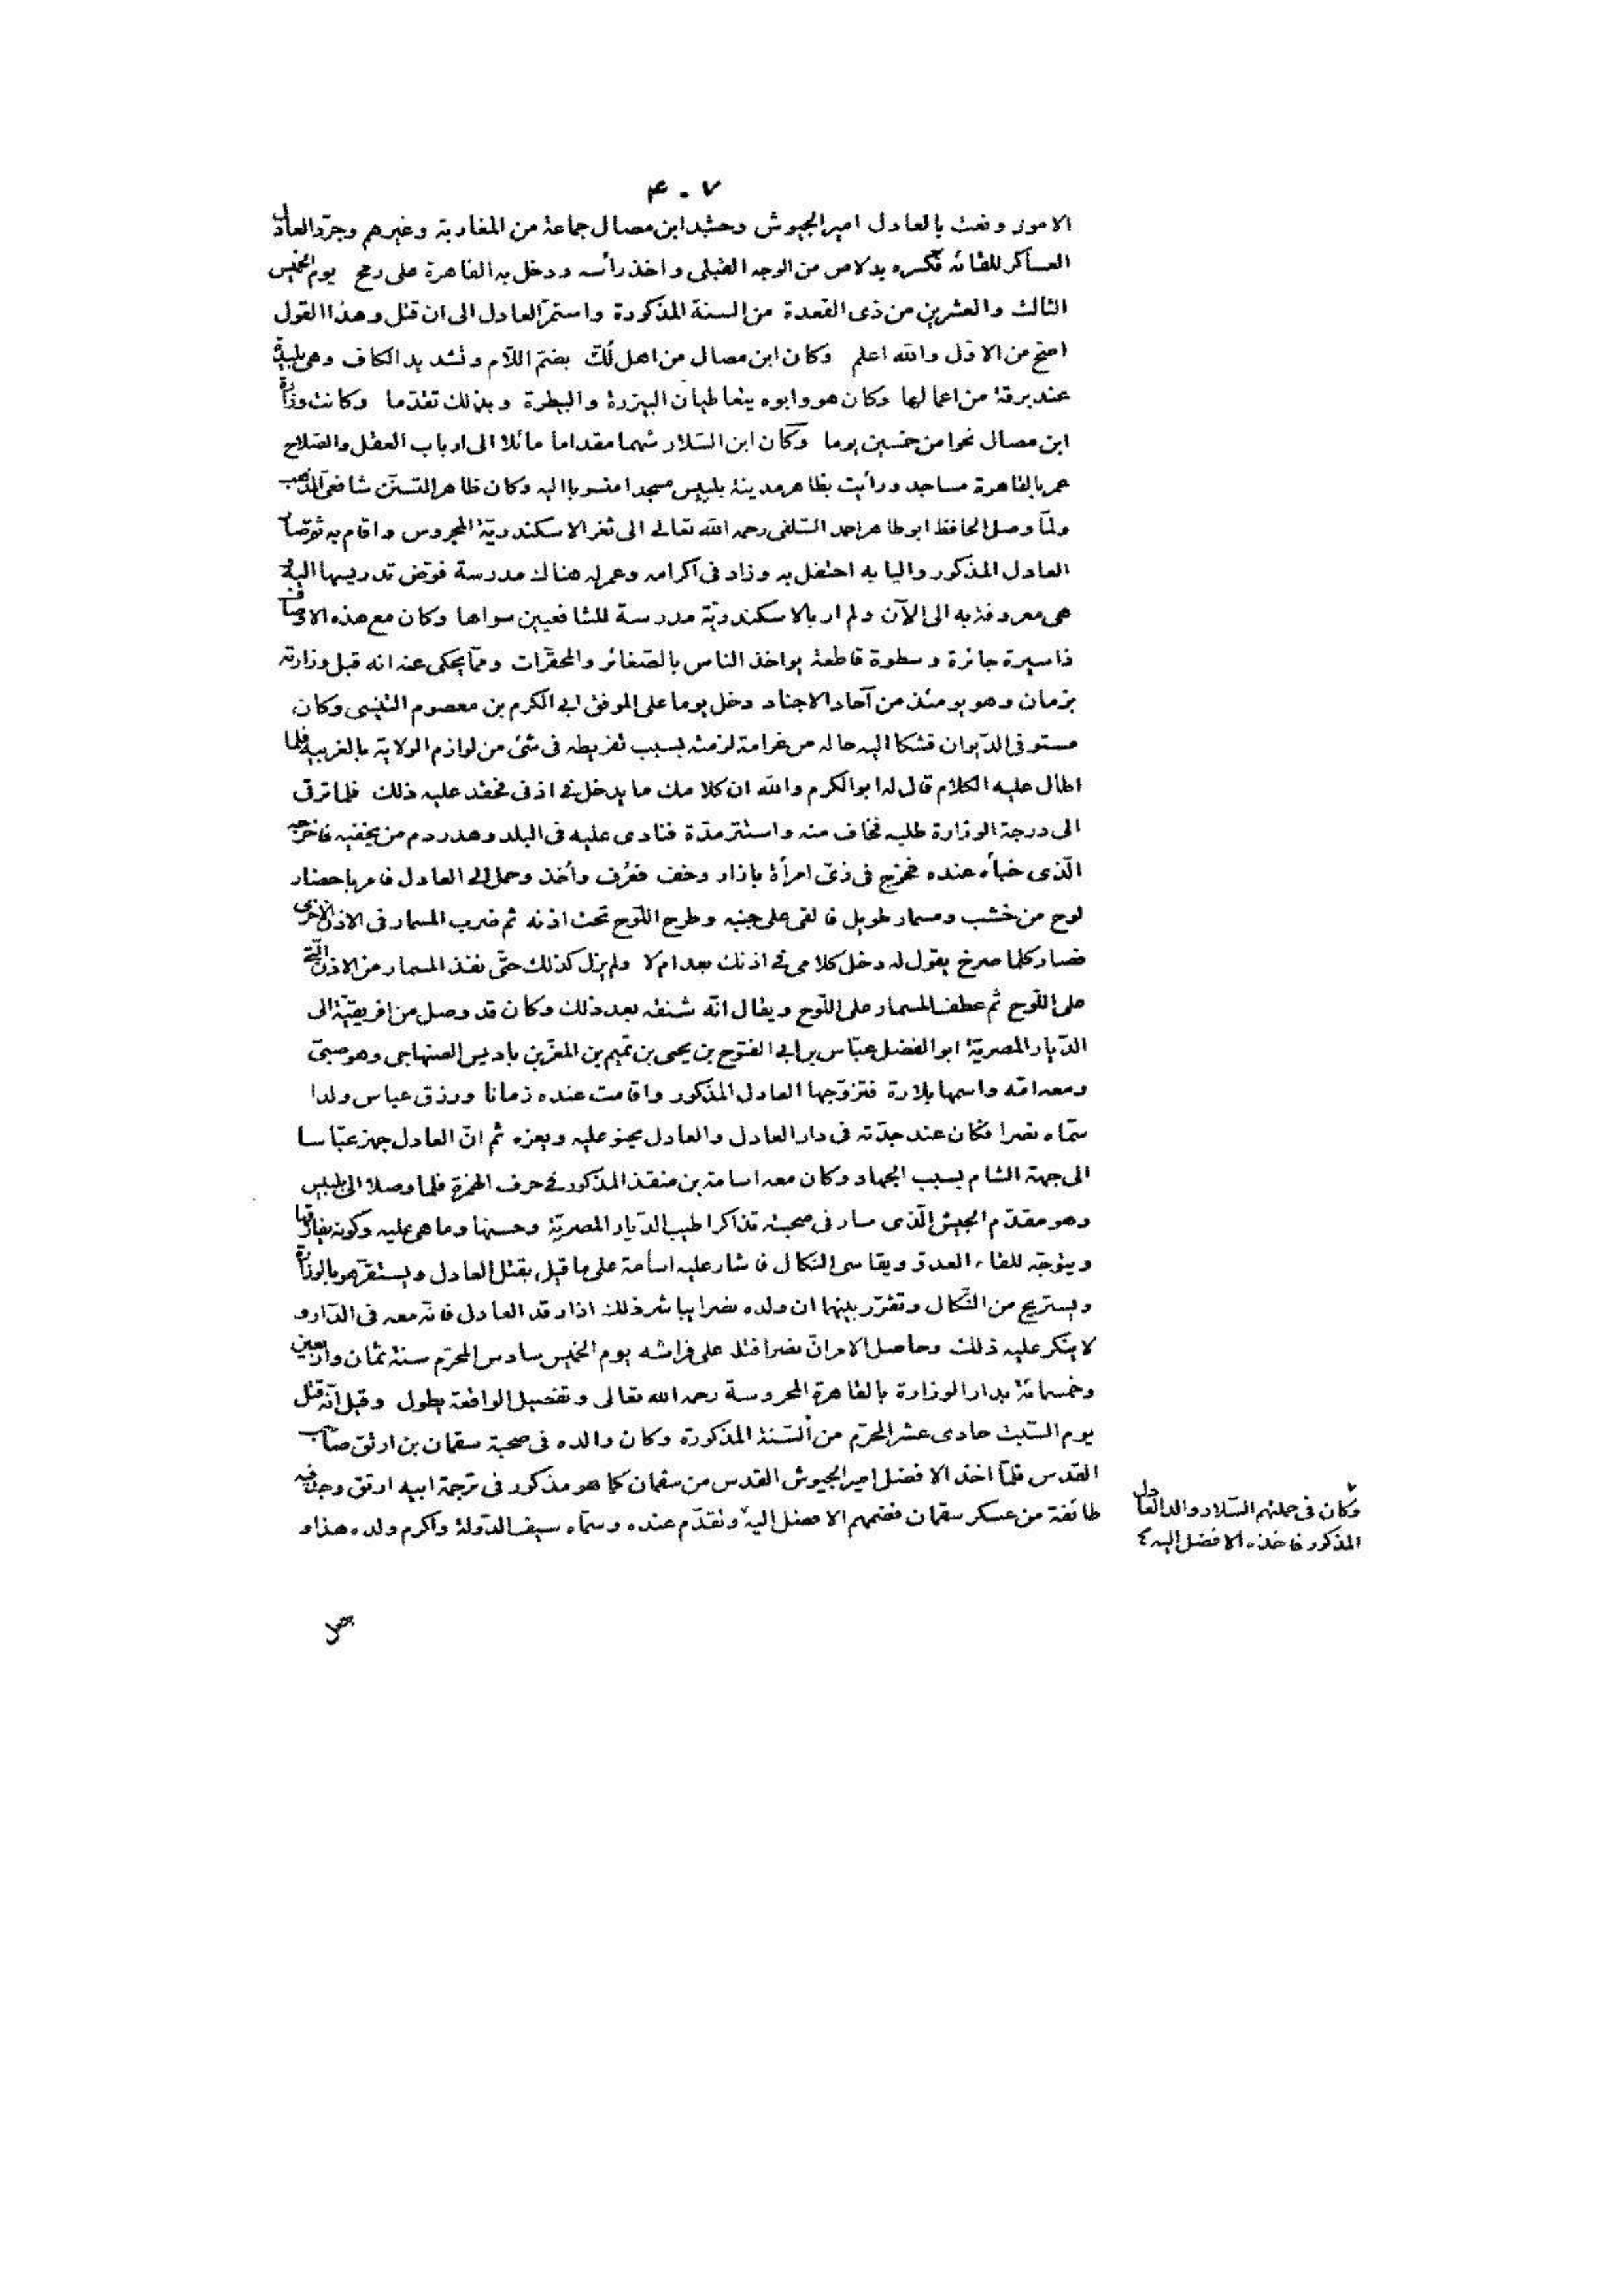 ۴۰۷
الامور ونعت بالعادل امير الجيوش وحشد ابن مصال جماعة من المغاربة وغيرهم وجرّد العادل
العساكر للقائه فكسره بدلاص من الوجه القبلى واخذ رأسه ودخل به القاهرة على رمح يوم الخميس
الثالث والعشرين من ذى القعدة من السنة المذكورة واستمرّ العادل الى ان قتل وهذا القول
اصحّ من الاوّل والله اعلم وكان ابن مصال من اهل لُكّ بضمّ اللّام وتشديد الكاف وهى بليدة
عند برقة من اعمالها وكان هو وابوه يتعاطيان البيزرة والبيطرة وبذلك تقدّما وكانت وزارة
ابن مصال نحوا من خمسين يوما وكان ابن السّلار شهما مقداما مائلا الى ارباب العقل والصّلاح
عمر بالقاهرة مساجد ورأيت بظاهر مدينة بلبيس مسجدا منسوبا اليه وكان ظاهر التسنّن شافعىّ المذهب
ولمّا وصل الحافظ ابو طاهر احمد السّلفى رحمه الله تعالى الى ثغر الاسكندريّة المحروس واقام به ثم صار
العادل المذكور واليا به احتفل به وزاد فى اكرامه وعمر له هناك مدرسة فوّض تدريسها اليه
هى معروفة به الى الآن ولم ار بالاسكندريّة مدرسة للشافعيين سواها وكان مع هذه الاوصاف
ذا سيرة جائرة وسطوة قاطعة يواخذ الناس بالصّغائر والمحقّرات وممّا يحكى عنه انه قبل وزارته
بزمان وهو يومئذ من آحاد الاجناد دخل يوما على الموفق ابى الكرم بن معصوم التنيسى وكان
مستوفى الدّيوان فشكا اليه حاله من غرامة لزمته بسبب تفريطه فى شئ من لوازم الولاية بالغربية فلما
اطال عليه الكلام قال له ابو الكرم والله ان كلامك ما يدخل فى اذنى فحقد عليه ذلك فلما ترقى
الى درجة الوزارة طلبه فخاف منه واستتر مدّة فنادى عليه فى البلد وهدر دم من يخفيه فاخرجه
الّذى خبأه عنده فخرج فى زىّ امرأة بازار وخف فعُرف وأخذ وحمل الى العادل فامر باحضار
لوح من خشب ومسمار طويل فالقى على جنبه وطرح اللّوح تحت اذنه ثم ضرب المسمار فى الاذن الاخرى
فصار كلما صرخ يقول له دخل كلامى فى اذنك بعد ام لا ولم يزل كذلك حتّى نفذ المسمار من الاذن الّتى
على اللّوح ثم عطف المسمار على اللّوح ويقال انّه شنقه بعد ذلك وكان قد وصل من افريقيّة الى
الدّيار المصريّة ابو الفضل عبّاس بن ابى الفتوح بن يحيى بن تميم بن المعزّ بن باديس الصنهاجى وهو صبىّ
ومعه امّه واسمها بلارة فتزوّجها العادل المذكور واقامت عنده زمانا ورزق عباس ولدا
سمّاه نصرا فكان عند جدّته فى دار العادل والعادل يحنو عليه ويعزه ثم انّ العادل جهز عبّاسا
الى جهة الشام بسبب الجهاد وكان معه اسامة بن منقذ المذكور فى حرف الهمزة فلما وصلا الى بلبيس
وهو مقدّم الجيش الّذى سار فى صحبته تذاكرا طيب الدّيار المصريّة وحسنها وما هى عليه وكونه يفارقها
ويتوجّه للقاء العدوّ ويقاسى النكال فاشار عليه اسامة على ما قيل بقتل العادل ويستقرّ هو بالوزارة
ويستريح من النّكال وتقرّر بينهما ان ولده نصرا يباشر ذلك اذا رقد العادل فانّه معه فى الدّار و
لا ينكر عليه ذلك وحاصل الامر انّ نصرا قتله على فراشه يوم الخميس سادس المحرّم سنة ثمان واربعين
وخمسمائة بدار الوزارة بالقاهرة المحروسة رحمه الله تعالى وتفصيل الواقعة يطول وقيل انّه قتل
يوم السّبت حادى عشر المحرّم من السّنة المذكورة وكان والده فى صحبة سقمان بن ارتق صاحب
القدس فلمّا اخذ الافضل امير الجيوش القدس من سقمان كما هو مذكور فى ترجمة ابيه ارتق وجد فيه
طائفة من عسكر سقمان فضمهم الافضل اليه وتقدّم عنده وسمّاه سيف الدّولة واكرم ولده هذا و
وكان فى جملتهم السّلار والد العادل
المذكور فاخذه الافضل اليه
جعل